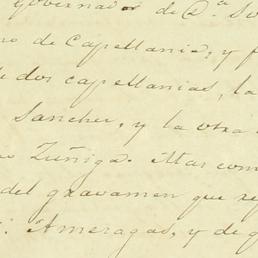 Gobernador de D.ª
no de Capellania, y
de dos capellanias, la
Sanchez, y la otra
Zuñiga. Mas com
del gravamen que re
Ameragas, y de q